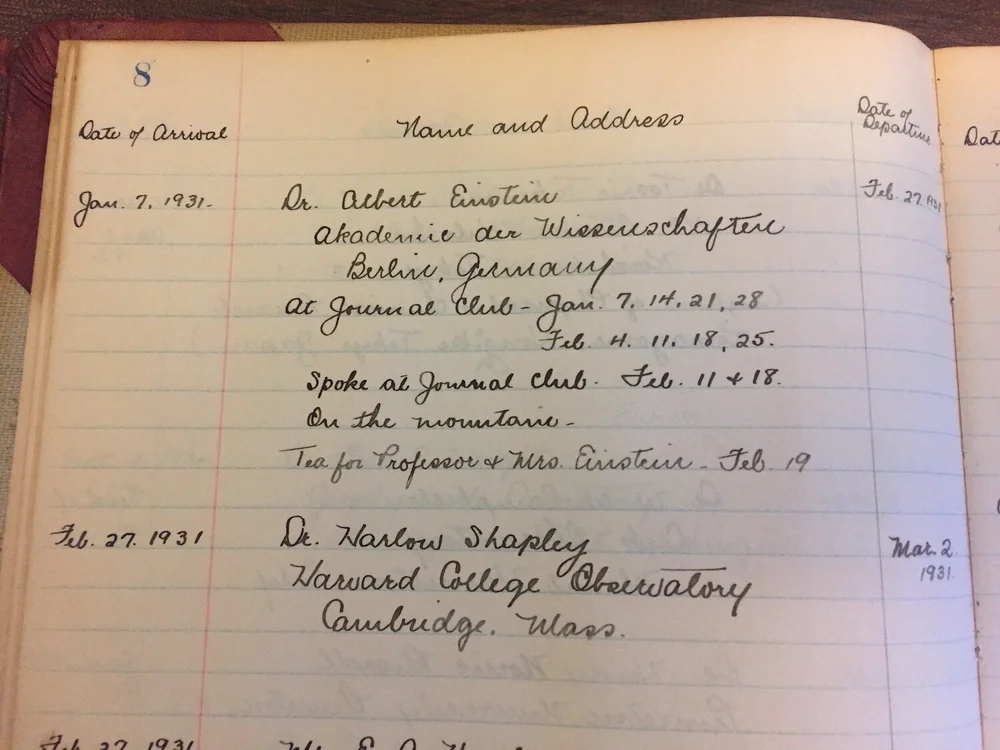 8
Date of Arrival Name and Address Date of Departure
Jan. 7, 1931. Dr. Albert Einstein Feb. 27, 1931
Akademie der Wissenschaften
Berlin, Germany
At Journal Club - Jan. 7, 14, 21, 28
Feb. 4, 11, 18, 25.
Spoke at Journal Club. Feb. 11 & 18.
On the mountain -
Tea for Professor & Mrs. Einstein - Feb. 19
Feb. 27, 1931 Dr. Harlow Shapley Mar. 2
Harvard College Observatory 1931.
Cambridge, Mass.
Feb. 27, 1931